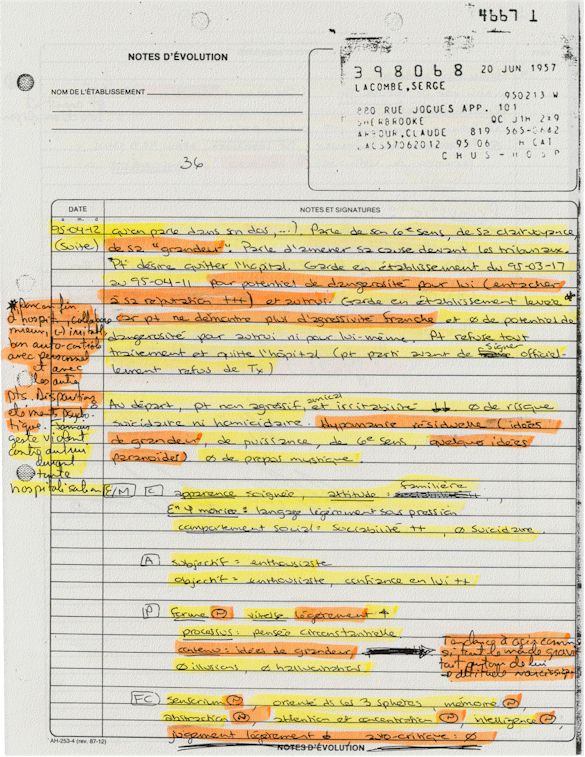 4667 I
NOTES D'ÉVOLUTION
NOM DE L'ÉTABLISSEMENT
36
398068 20 JUN 1957
LACOMBE,SERGE
950213 W
880 RUE JOGUES APP. 101
SHERBROOKE QC J1H 2X9
ARBOUR,CLAUDE 819 565-0642
LACS57062012 95 06 H CAT
CHUS-HOSP
DATE
A M J
NOTES ET SIGNATURES
95-04-12 qu'on parle dans son dos, ...) Parle de son 6e sens, de sa clairvoyance,
(suite) de sa "grandeur". Parle d'amener sa cause devant les tribunaux.
Pt désire quitter l'hôpital. Garde en établissement du 95-03-17
au 95-04-11 par potentiel de dangerosité pour lui (entacher
à sa réputation +++) et autrui. Garde en établissement levée *
car pt ne démontre plus d'agressivité franche et Ø de potentiel de
dangerosité par autrui ni pour lui-même. Pt refuse tout
traitement et quitte l'hôpital (pt parti avant de signer officiel-
lement refus de Tx)
* Pdt fin
d'hospit., collabore
mieux, (-) irritable
bon auto-contrôle
avec personnel
et avec
les autres
pts. Disparition
éléments psycho-
tique. Jamais
geste violent
contre autrui
durant
toute
hospitalisation
Au départ, pt non agressif, amical et irritabilité ↓↓ Ø de risque
suicidaire ni homicidaire. Hypomanie résiduelle (idées
de grandeur, de puissance, de 6e sens, quelques idées
paranoïdes) Ø de propos mystique.
E/M C apparence soignée, attitude: familière
langage légèrement sous pression
comportement social: sociabilité ++, Ø suicidaire
A subjectif = enthousiaste
objectif = enthousiaste, confiance en lui ++
P forme N, vitesse légèrement ↑
processus: pensée circonstancielle
contenu: idées de grandeur
Ø illusions, Ø hallucinations
Tendance à agir comme
si tout le monde gravi
tait autour de lui
attitude narcissique
FC sensorium N, orienté ds les 3 sphères, mémoire N,
abstraction N, attention et concentration N, intelligence N,
jugement légèrement ↓ auto-critique: Ø
AH-253-4 (rev. 87-12)
NOTES D'ÉVOLUTION